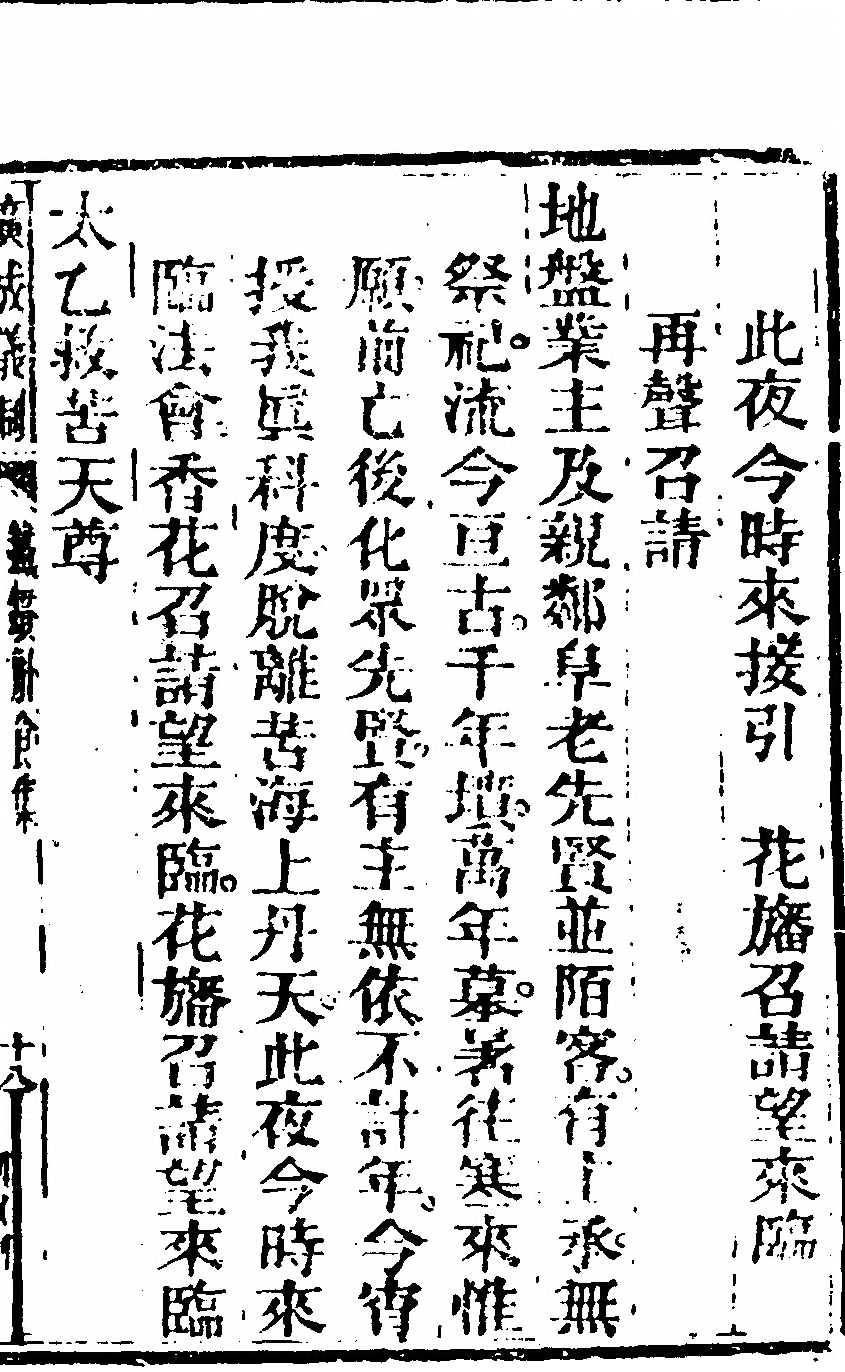 此夜今時來接引　花旛召請望來臨
再聲召請
地盤業主及親鄰皐老先賢並陌客有丨承無
祭祀流今亘古千年塚萬年墓暑往寒來惟
願前亡後化眾先賢有主無依不計年今宵
授我眞科度脫離苦海上丹天此夜今時來
臨法會香花召請望來臨花旛召請望來臨
太乙救苦天尊
廣成儀制　鐵礶斛食集
十八